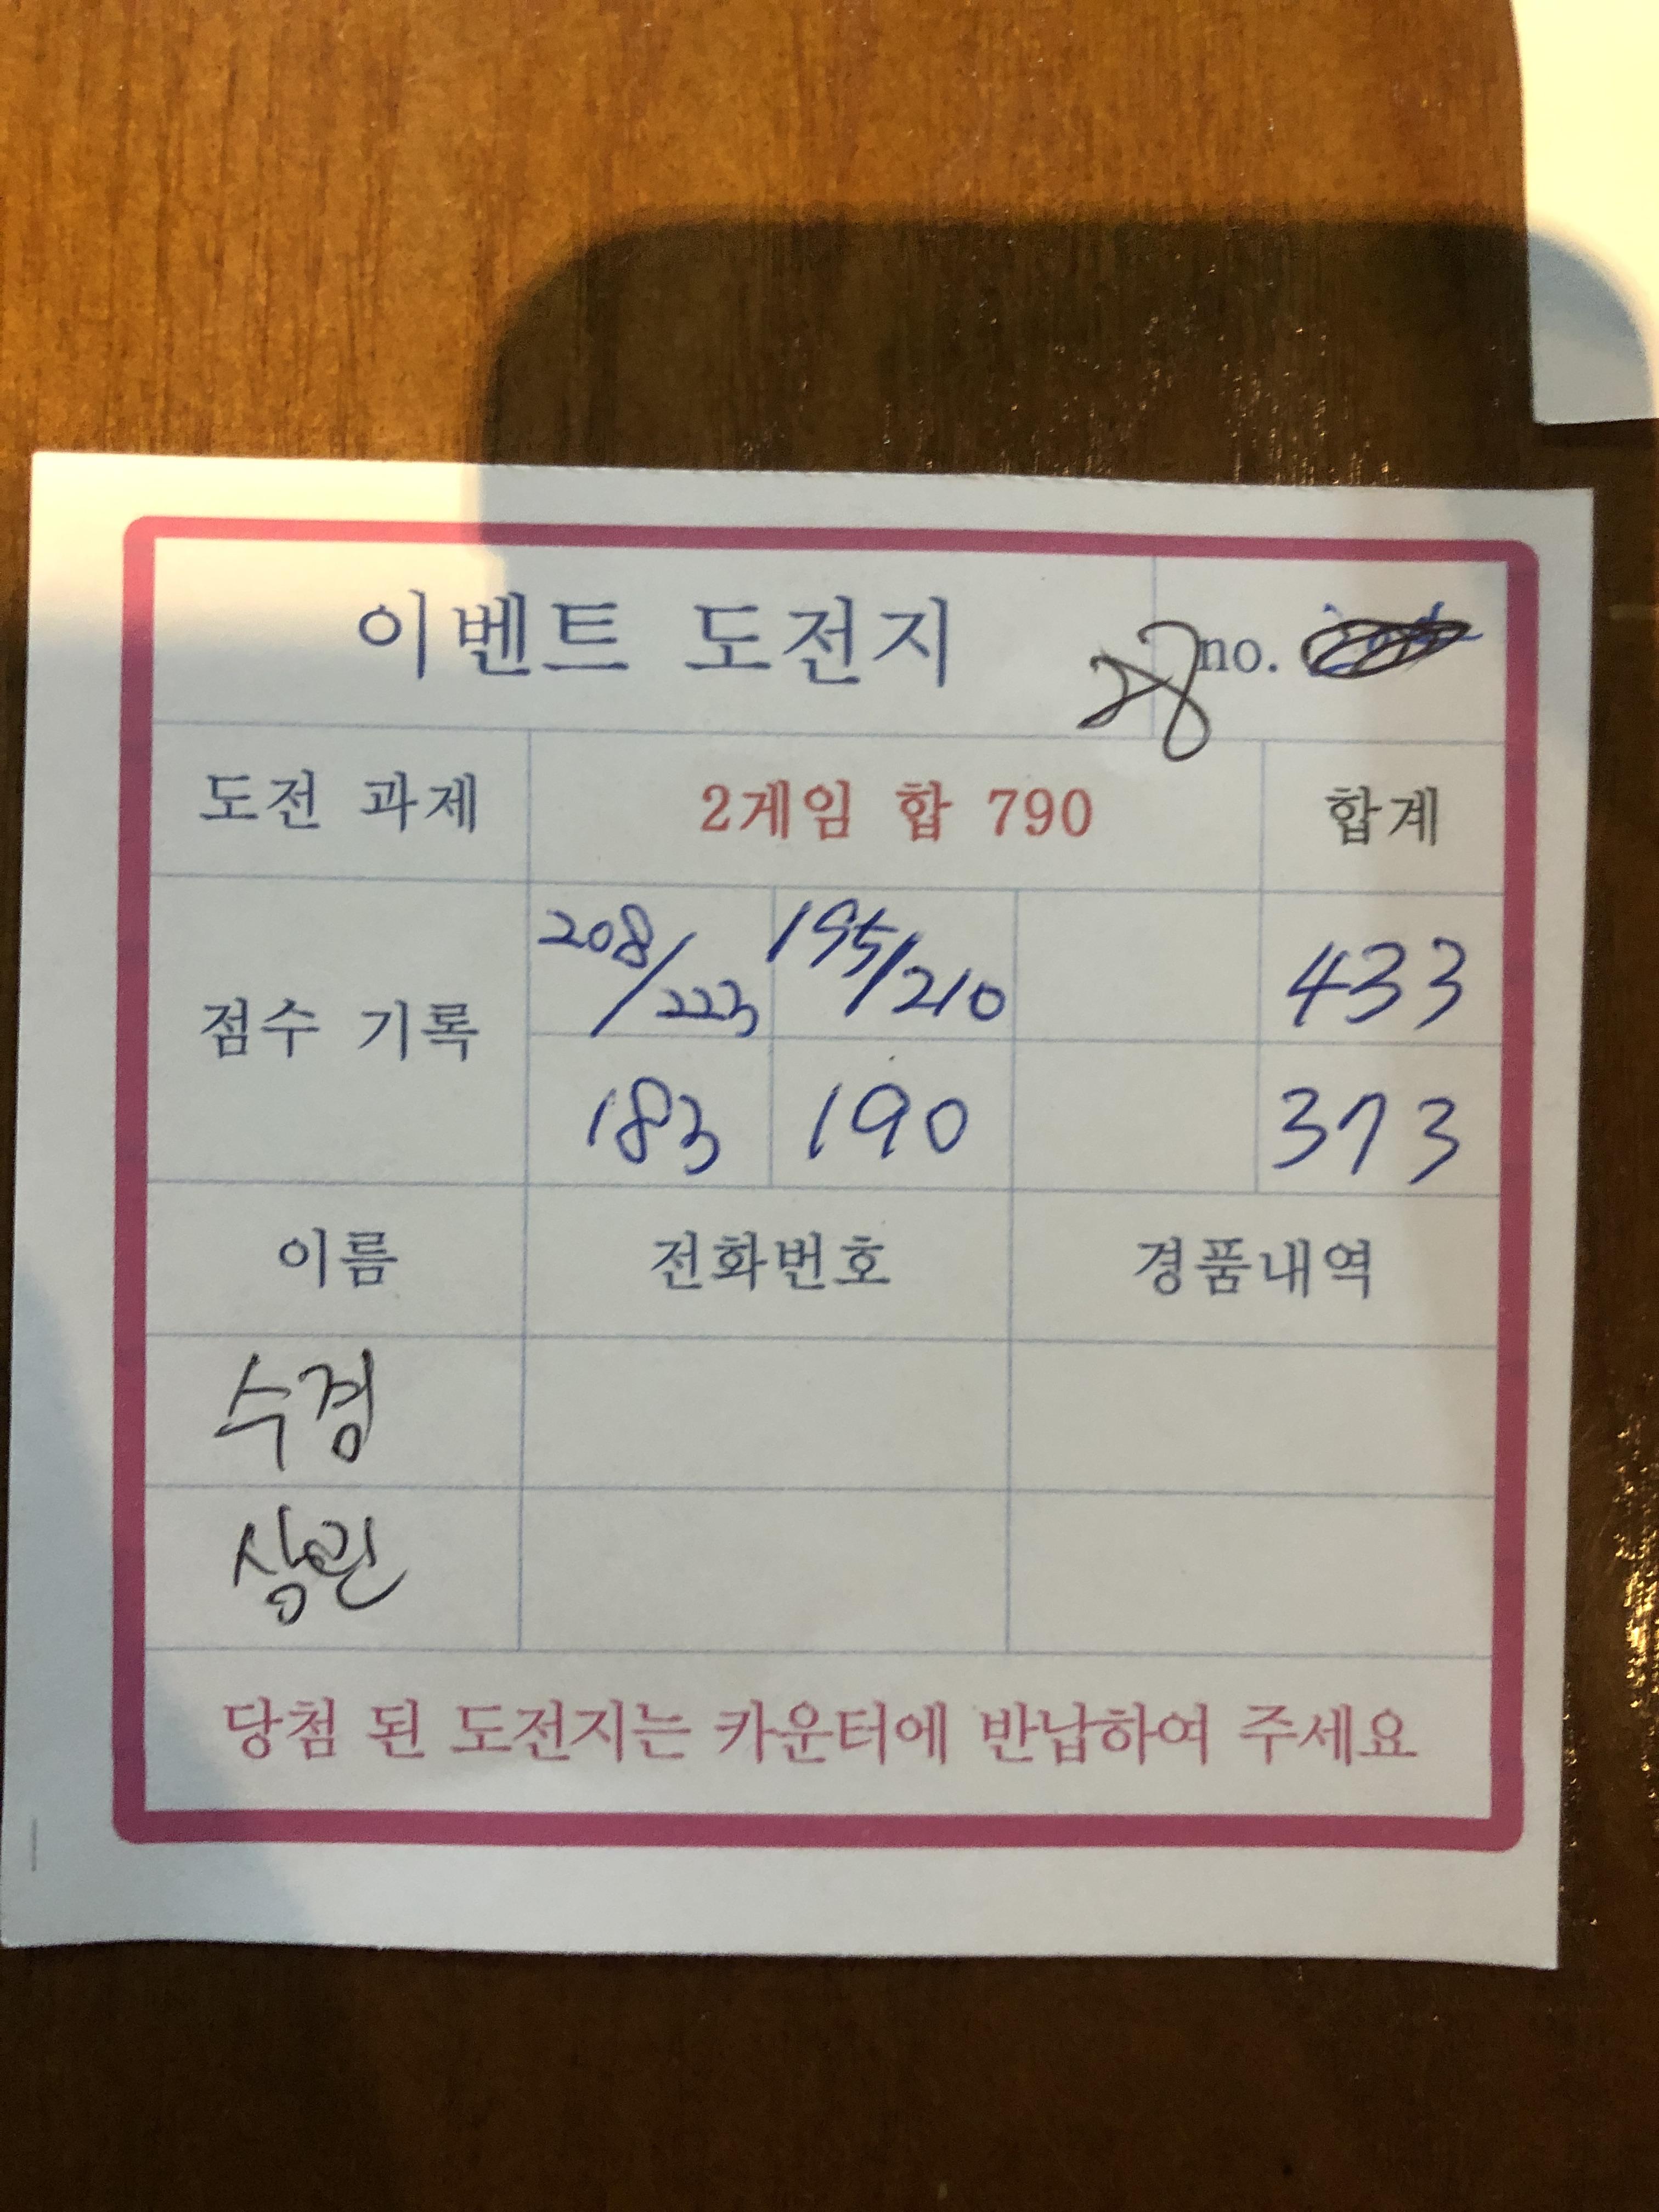 이벤트 도전지 28 no.
도전 과제 2게임 합 790 합계
점수 기록 208/223 195/210 433
183 190 373
이름 전화번호 경품내역
수경
상린
당첨 된 도전지는 카운터에 반납하여 주세요